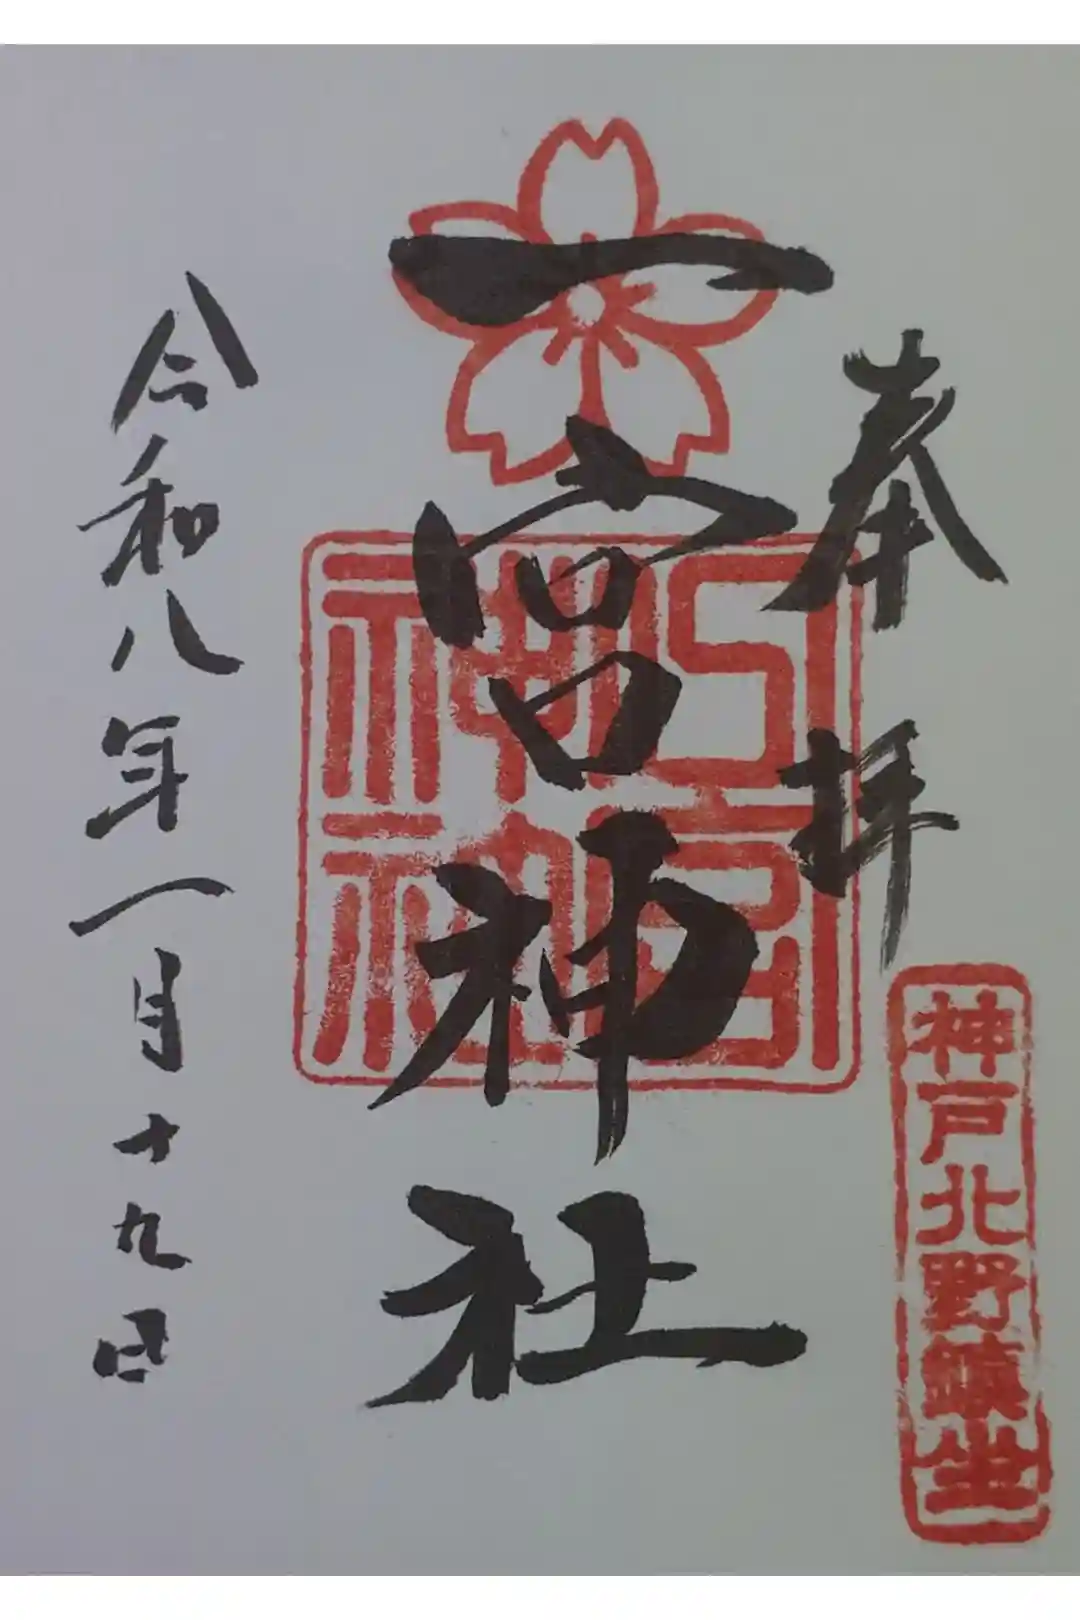 奉拝
神戸北野鎮坐
一宮神社
一宮神社
令和八年一月十九日